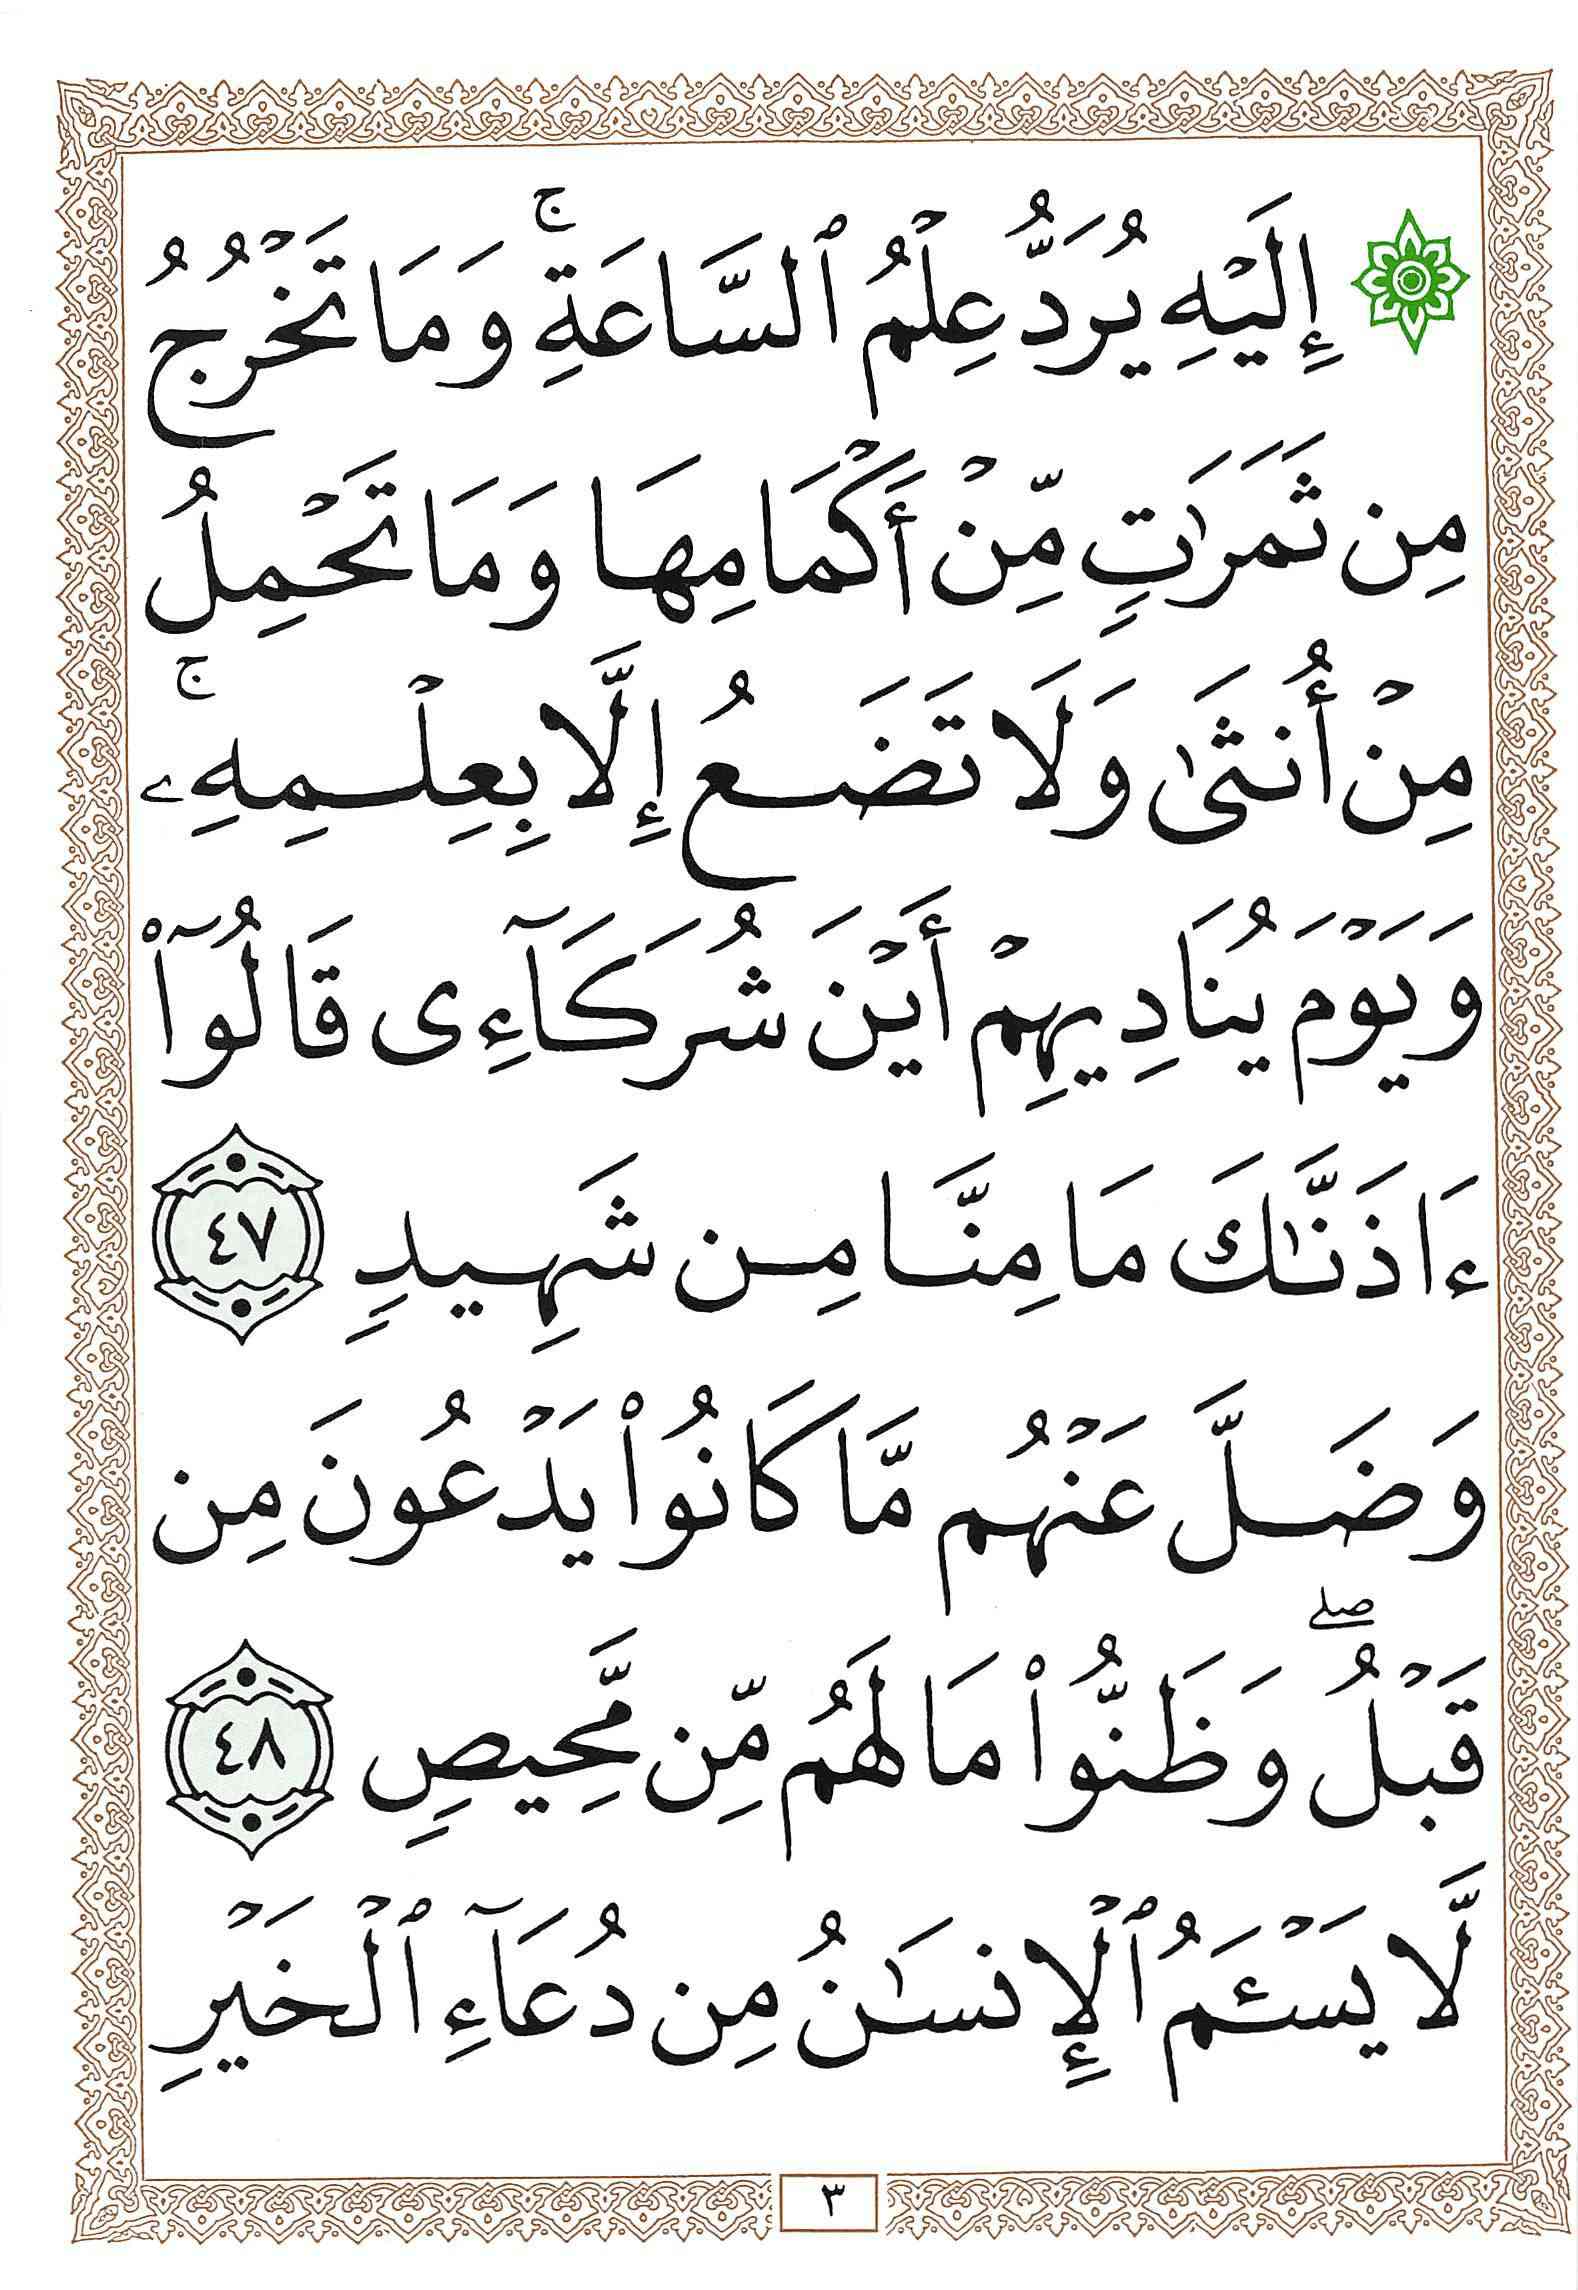 ۞ إِلَيْهِ يُرَدُّ عِلْمُ ٱلسَّاعَةِ ۚ وَمَا تَخْرُجُ
مِن ثَمَرَٰتٍ مِّنْ أَكْمَامِهَا وَمَا تَحْمِلُ
مِنْ أُنثَىٰ وَلَا تَضَعُ إِلَّا بِعِلْمِهِۦ ۚ
وَيَوْمَ يُنَادِيهِمْ أَيْنَ شُرَكَآءِى قَالُوٓا۟
ءَاذَنَّـٰكَ مَا مِنَّا مِن شَهِيدٍ ٤٧
وَضَلَّ عَنْهُم مَّا كَانُوا۟ يَدْعُونَ مِن
قَبْلُ ۖ وَظَنُّوا۟ مَا لَهُم مِّن مَّحِيصٍ ٤٨
لَّا يَسْـَٔمُ ٱلْإِنسَـٰنُ مِن دُعَآءِ ٱلْخَيْرِ
٣